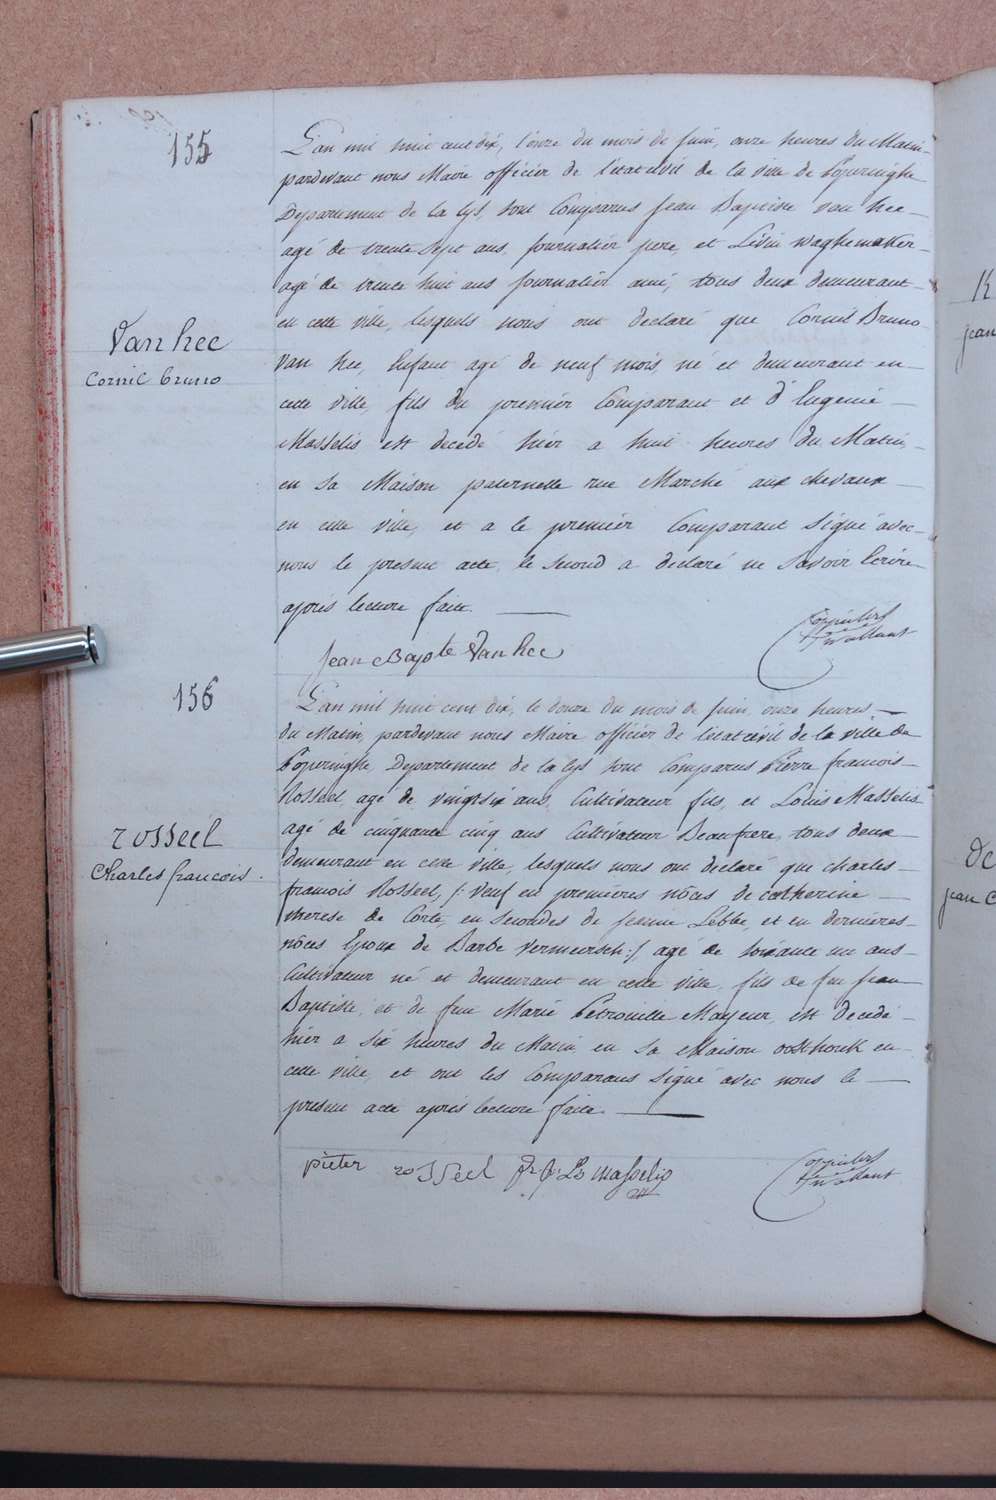 155
L'an mil huit cent dix, l'onze du mois de Juin, onze heures du Matin
pardevant nous Maire officier de l'état civil de la ville de Poperinghe
Departement de la Lys, sont Comparus Jean Baptiste van hee
agé de trente sept ans, journalier pere, et Livin waghemaker
agé de trente huit ans journalier ami, tous deux demeurant
en cette ville, lesquels nous ont declaré que Cornil Bruno
Van hee
Cornil bruno
van hee, Enfant agé de neuf mois, né et demeurant en
cette ville, fils du premier Comparant et d'Eugenie
Masselis est decedé hier a huit heures du Matin,
en sa Maison paternelle rue Marché aux chevaux
en cette ville, et a le premier Comparant Signé avec
nous le present acte, le second a declaré ne Savoir Ecrire
après lecture faite.
Jean Bapte Van hee
156
L'an mil huit cent dix, le douze du mois de Juin, onze heures
du Matin, pardevant nous Maire officier de l'état civil de la ville de
Poperinghe, Departement de la Lys sont Comparus Pierre francois
Rosseel, agé de vingt six ans, Cultivateur fils, et Louis Masselis
agé de cinquante cinq ans Cultivateur Beaufrere, tous deux
rosseel
Charles francois.
demeurant en cette ville, lesquels nous ont declaré que charles
francois Rosseel, /: veuf en premieres nôces de catherine
therese de Corte, en secondes de jeanne Lebbe, et en dernieres
nôces Epoux de Barbe vermeersch :/ agé de soixante un ans
Cultivateur né et demeurant en cette ville, fils de feu jean
Baptiste, et de feue Marie Petronille Mayeur, est decedé
hier a six heures du Matin en sa Maison oosthouk en
cette ville, et ont les Comparans signé avec nous le
present acte après lecture faite.
pieter rosseel Ls Masselis
K
jean
De
jean C